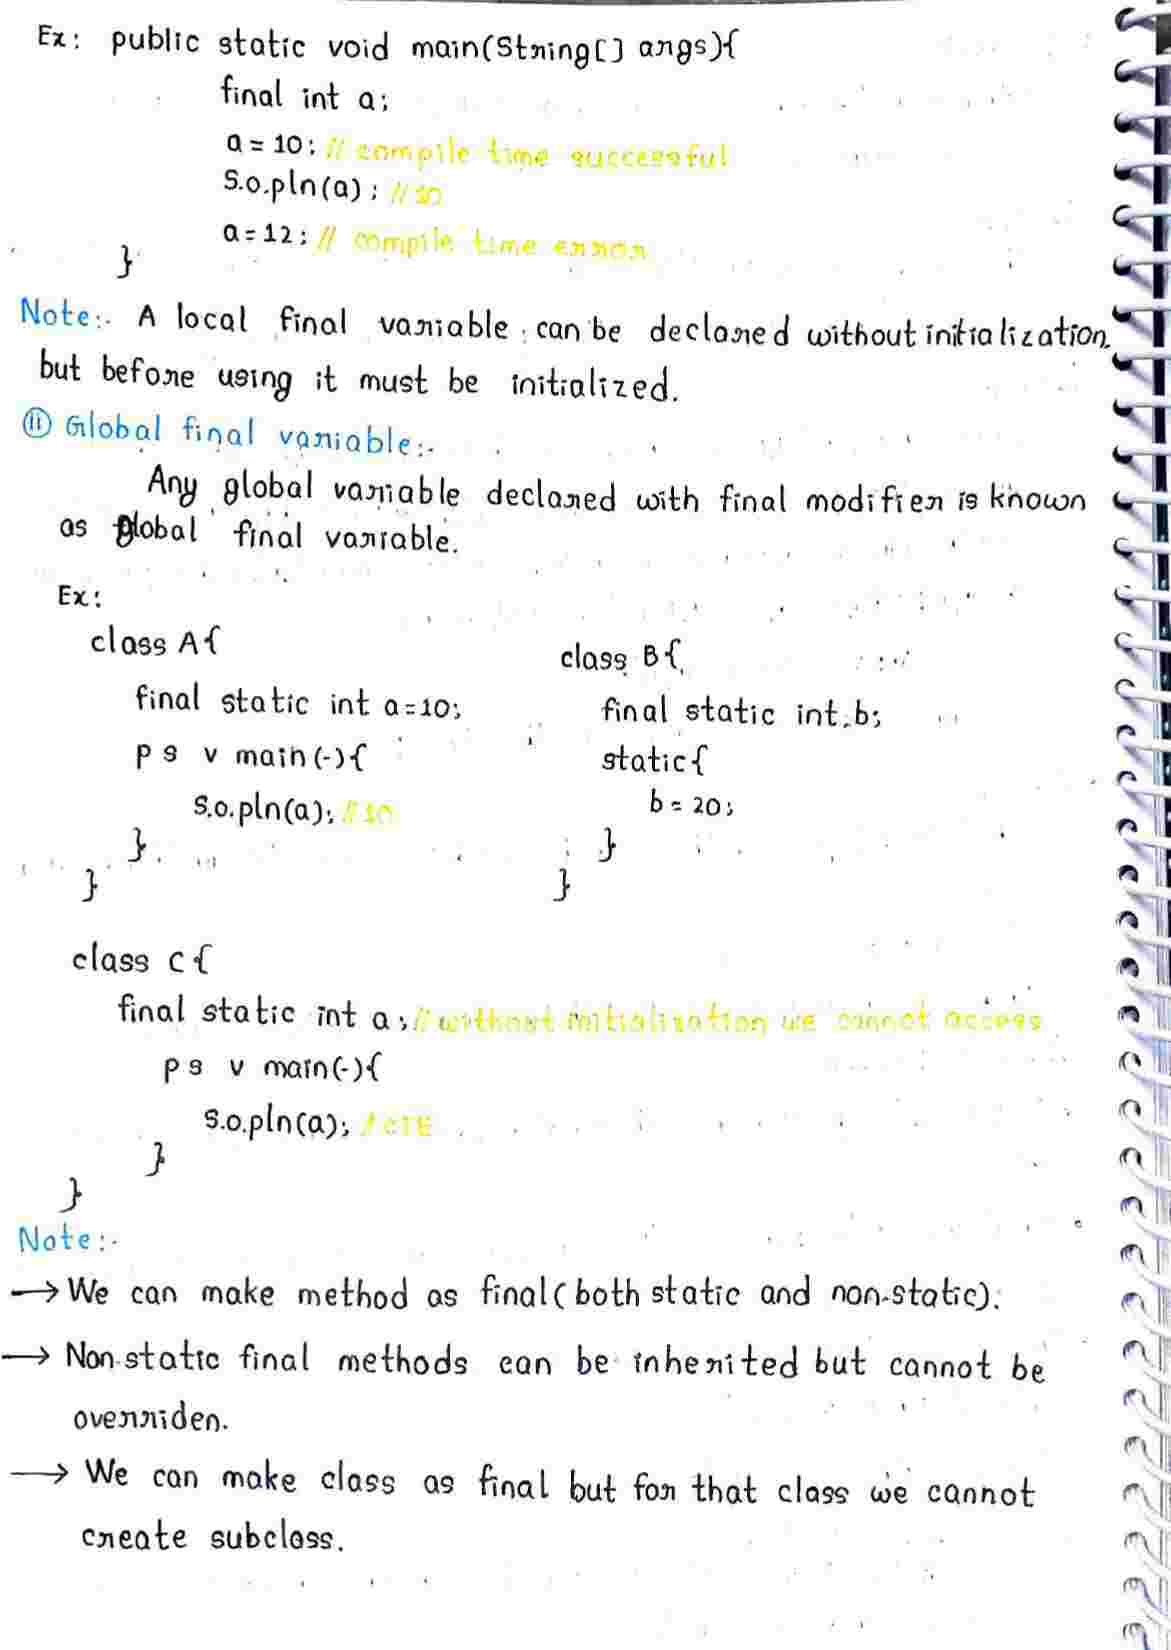 Ex: public static void main(String[] args){
final int a;
a = 10; // compile time successful
S.o.pln(a); // 10
a = 12; // compile time error
}
Note:- A local final variable can be declared without initialization,
but before using it must be initialized.
(ii) Global final variable:-
Any global variable declared with final modifier is known
as global final variable.
Ex:
class A{
final static int a=10;
p s v main(-){
S.o.pln(a); // 10
}
}
class B{
final static int b;
static{
b = 20;
}
}
class C{
final static int a; // without initialization we cannot access
p s v main(-){
S.o.pln(a); // CTE
}
}
Note:-
→ We can make method as final(both static and non-static).
→ Non-static final methods can be inherited but cannot be
overriden.
→ We can make class as final but for that class we cannot
create subclass.